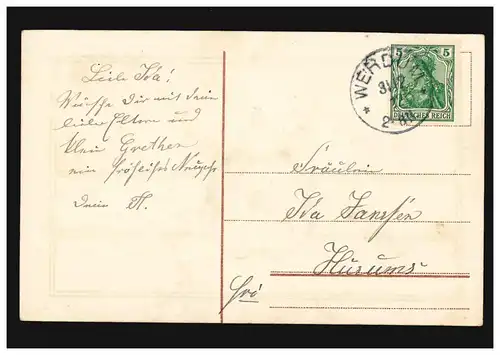 Liebe Ida!
Wünsche Dir mit Deinen
lieben Eltern und
klein Grethen
ein fröhliches Neujahr
Dein H.
WERDUM
5 5
DEUTSCHES REICH
Fräulein
Ida Janssen
Hier